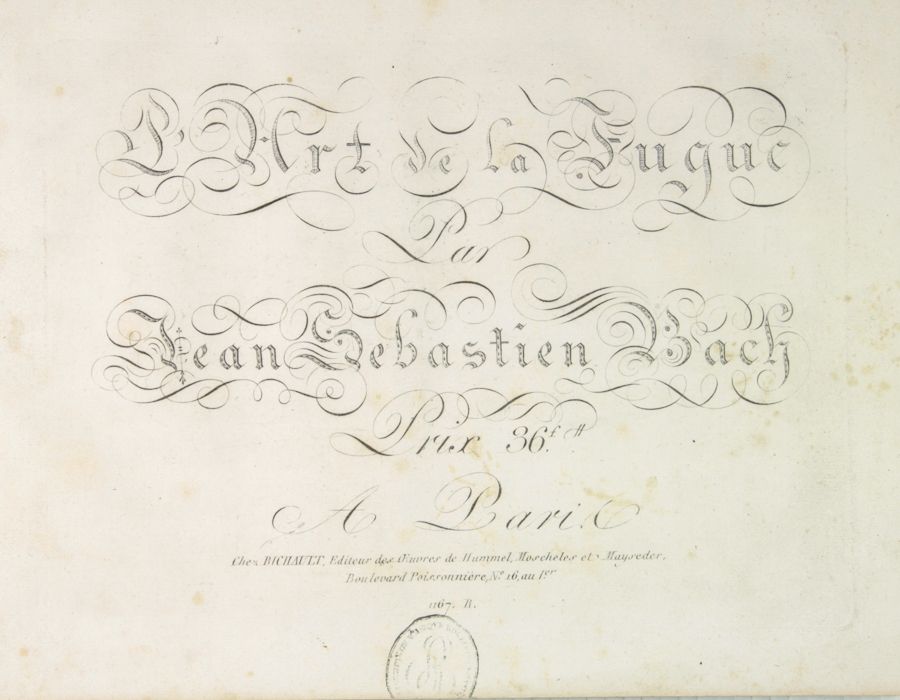 L'Art de la Fugue
Par
Jean Sebastien Bach
Prix 36.f
A Paris
Chez RICHAULT, Editeur des Œuvres de Hummel, Moscheles et Mayseder,
Boulevard Poissonnière, N.º 16, au 1.er
1167. R.